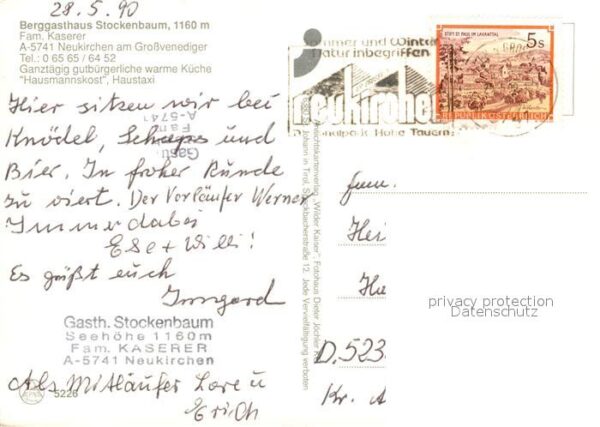 28.5.90
Berggasthaus Stockenbaum, 1160 m
Fam. Kaserer
A-5741 Neukirchen am Großvenediger
Tel.: 0 65 65 / 64 52
Ganztägig gutbürgerliche warme Küche
"Hausmannskost", Haustaxi
Hier sitzen wir bei
Knödel, Schnaps und
Bier. In froher Runde
zu viert. Der Vorläufer Werner
Immer dabei
Else + Willi!
Es grüßt euch
Irmgard
Gasth. Stockenbaum
Seehöhe 1160m
Fam. KASERER
A-5741 Neukirchen
Als Mitläufer Lore u
Erich
5226
Sommer und Winter
Naturinbegriffen
neukirchen
Nationalpark Hohe Tauern
STIFT ST. PAUL IM LAVANTTAL
5 S
REPUBLIK ÖSTERREICH
Ansichtskartenverlag „Wilder Kaiser", Fotohaus Dieter Jöchler
St. Johann in Tirol, Speckbacherstraße 12. Jede Vervielfältigung verboten
Fam.
D.523
Kr. A
privacy protection
Datenschutz